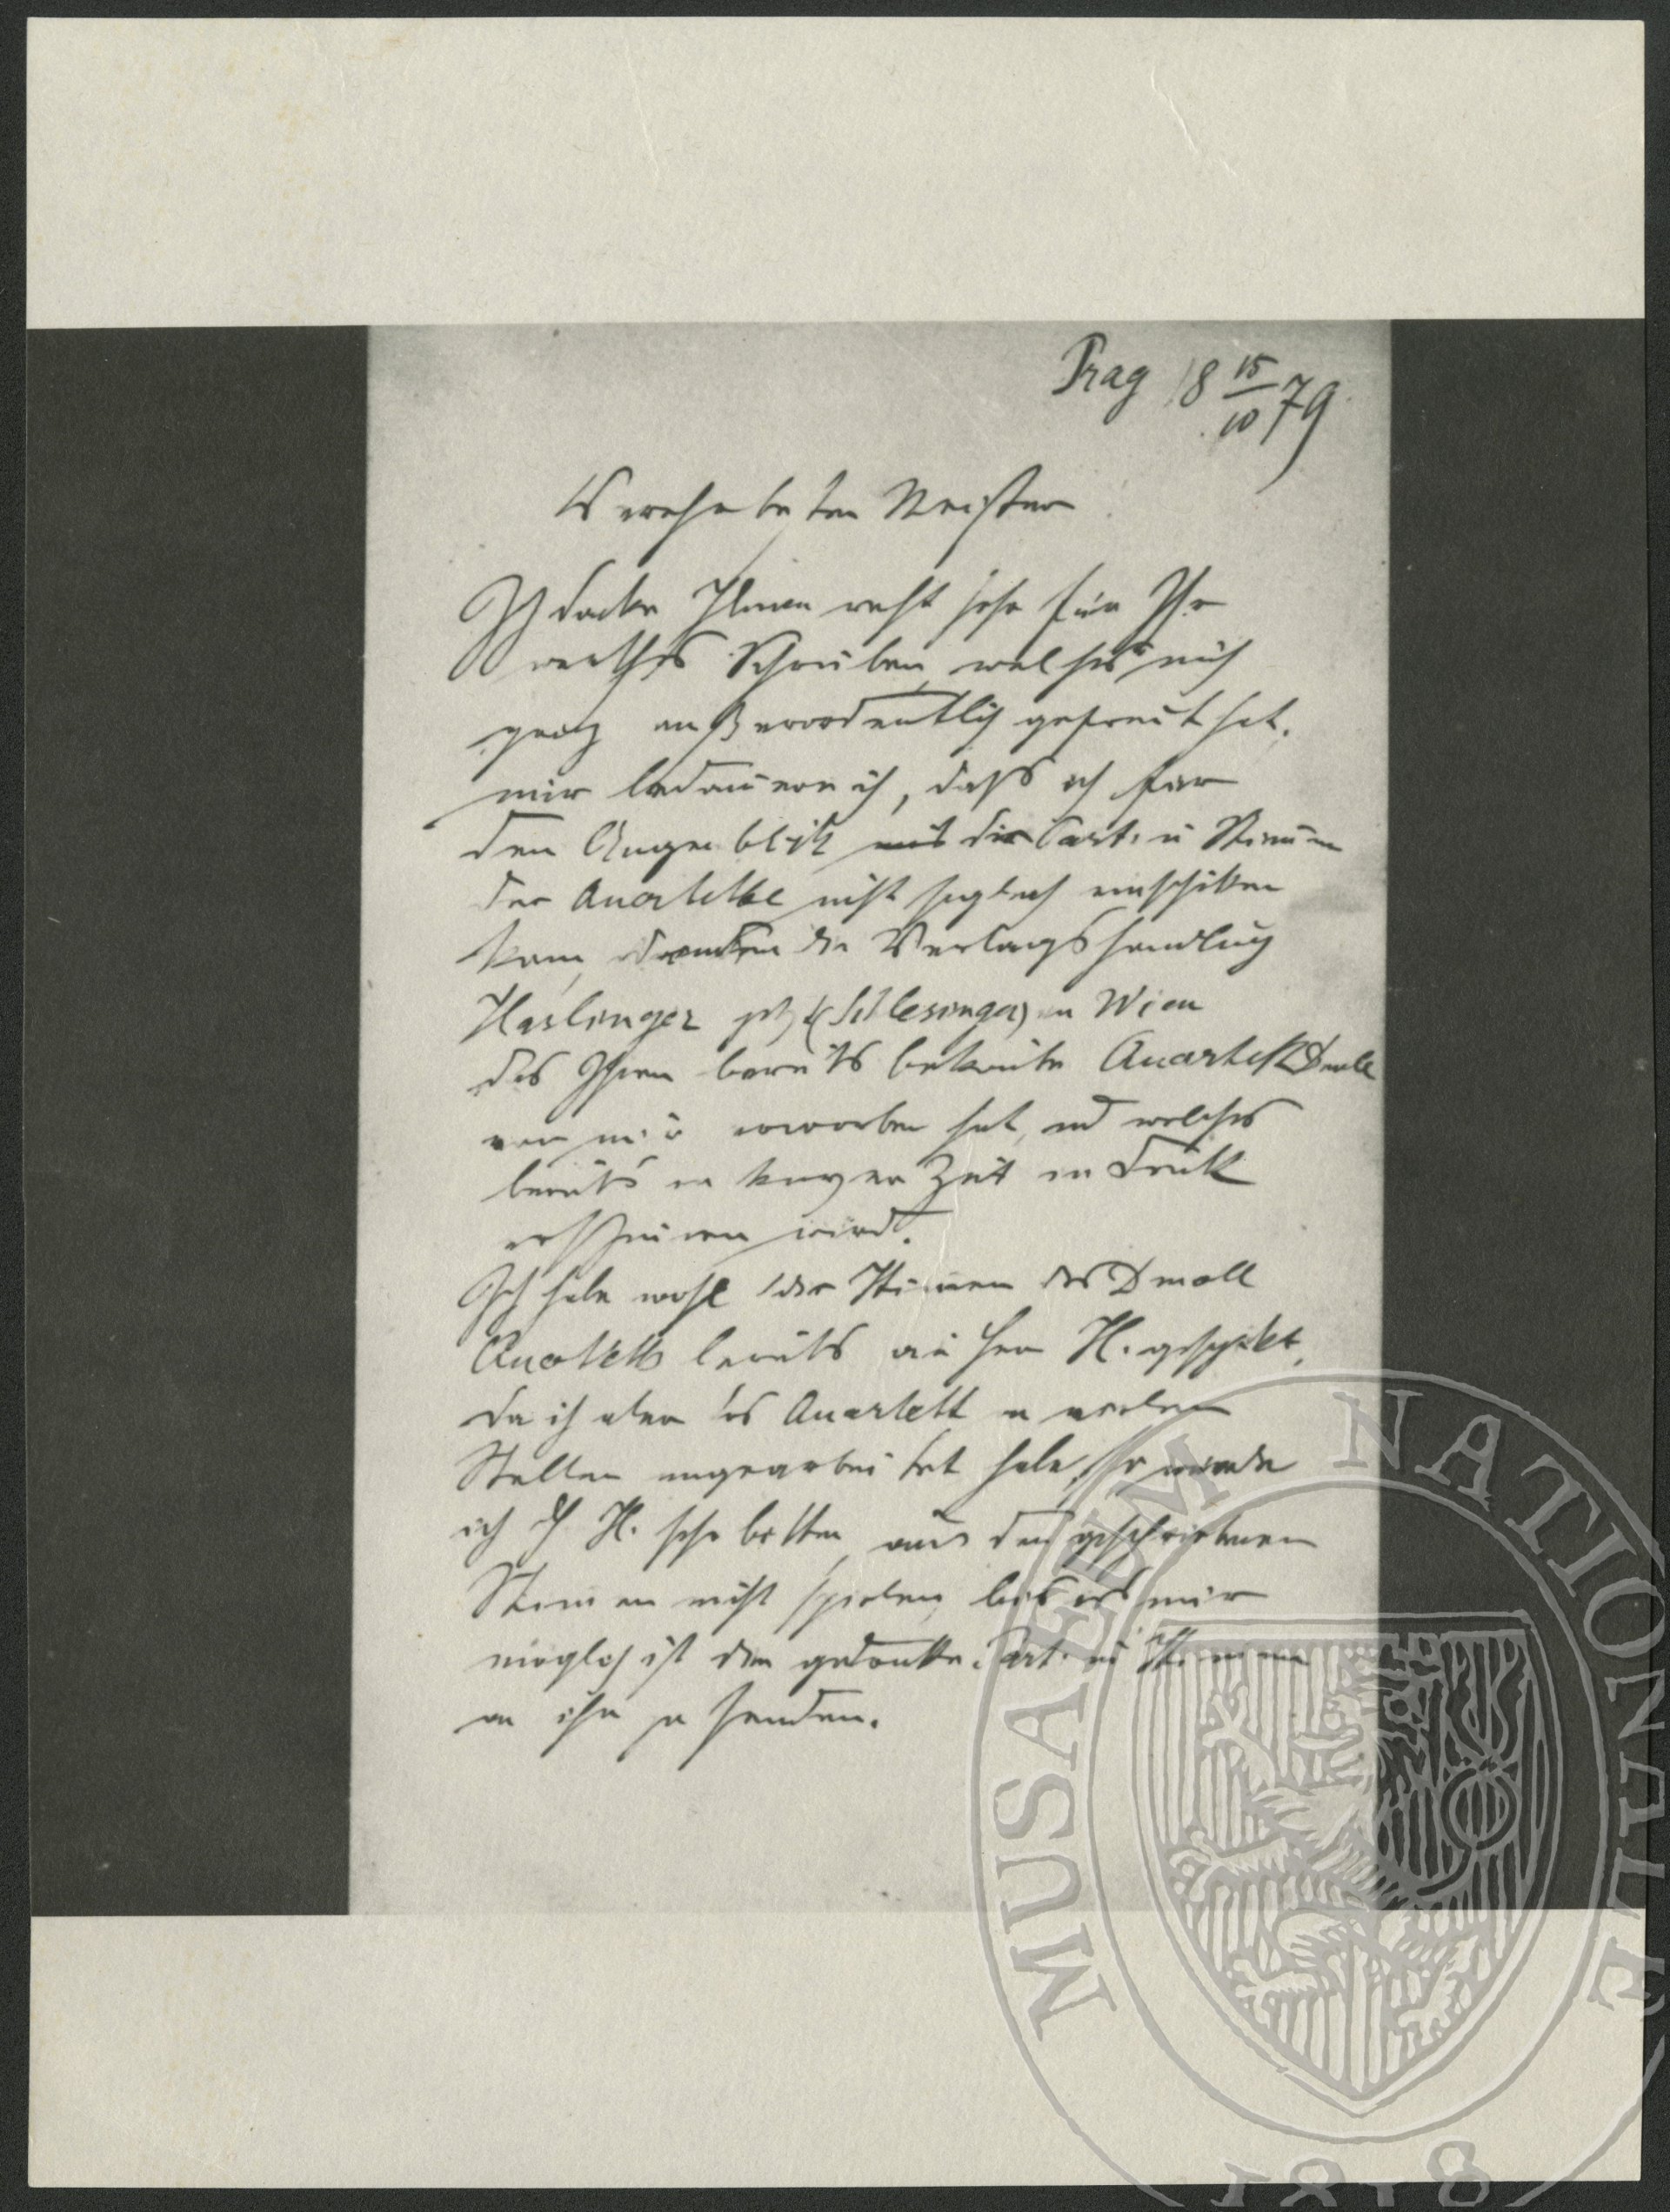 Prag 18 15/10 79
Verehrtester Meister
Ich danke Ihnen recht sehr für Ihr
werthes Schreiben, welches mich
ganz außerordentlich gefreut hat.
nur bedauere ich, daß ich für
den Augenblik die Part. u Stimmen
der Quartette nicht sogleich einschiken
kann, die Verlagshandlung
Haslinger (Schlesinger) in Wien
das Ihnen bereits bekannte Quartett Dmoll
von mir erworben hat, und welches
bereits in kurzer Zeit in Druk
erscheinen wird.
Ich habe wohl die Stimmen des Dmoll
Quartetts bereits an Herr H. geschikt,
da ich aber das Quartett an vielen
Stellen umgearbeitet habe, so werde
ich H. H. sehr bitten, aus den geschriebenen
Stimmen nicht spielen, bis es mir
möglich ist die gedrukte Part. u Stimmen
an ihn zu senden.
MUSAEUM NATIONALE
1818